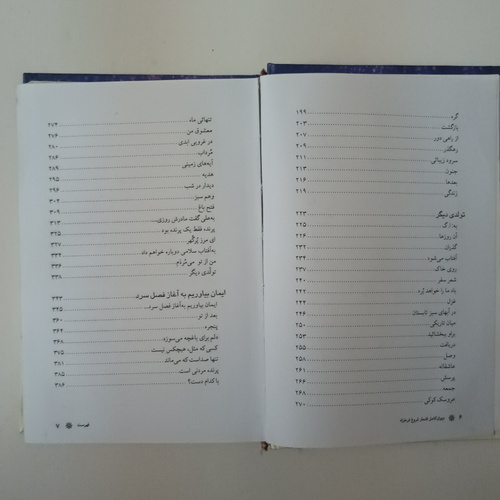 گره ۱۹۹
بازگشت ۲۰۳
از راهی دور ۲۰۷
رهگذر ۲۰۹
سرود زیبائی ۲۱۱
جنون ۲۱۳
بعدها ۲۱۶
زندگی ۲۱۹
تولدی دیگر ۲۲۳
به: ا.گ ۲۲۵
آن روزها ۲۲۶
گذران ۲۳۲
آفتاب می‌شود ۲۳۴
روی خاک ۲۳۷
شعر سفر ۲۴۰
باد ما را خواهد بُرد ۲۴۲
غزل ۲۴۴
در آبهای سبز تابستان ۲۴۶
میان تاریکی ۲۵۰
بر او ببخشائید ۲۵۳
دریافت ۲۵۵
وصل ۲۵۸
عاشقانه ۲۶۱
پرسش ۲۶۶
جمعه ۲۶۸
عروسک کوکی ۲۷۰
۶ دیوان کامل اشعار فروغ فرخزاد
تنهائی ماه ۲۷۴
معشوق من ۲۷۶
در غروبی ابدی ۲۸۰
مُرداب ۲۸۶
آیه‌های زمینی ۲۸۹
هدیه ۲۹۵
دیدار در شب ۲۹۶
وهم سبز ۳۰۴
فتح باغ ۳۰۹
به‌علی گفت مادرش روزی... ۳۱۳
پرنده فقط یک پرنده بود ۳۲۵
ای مرز پُرگُهر ۳۲۷
به‌آفتاب سلامی دوباره خواهم داد ۳۳۴
من از تو می‌مُردَم ۳۳۶
تولّدی دیگر ۳۳۸
ایمان بیاوریم به آغاز فصل سرد ۳۴۳
ایمان بیاوریم به‌آغاز فصل سرد... ۳۴۵
بعد از تو ۳۶۰
پنجره ۳۶۴
دلم برای باغچه می‌سوزد ۳۶۸
کسی که مثل هیچکس نیست ۳۷۵
تنها صداست که می‌ماند ۳۸۱
پرنده مردنی است ۳۸۵
با کدام دست؟ ۳۸۶
فهرست ۷